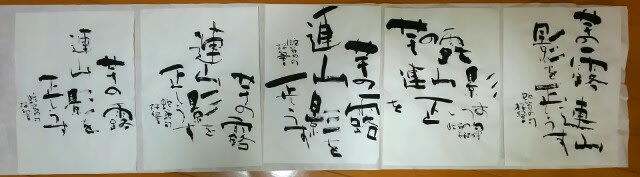 芋の露連山
影を正しうす
芋の露
連山影
を正しうす
芋の露
連山影を
正しうす
芋の露
連山影を
正しうす
芋の露
連山影を
正しうす